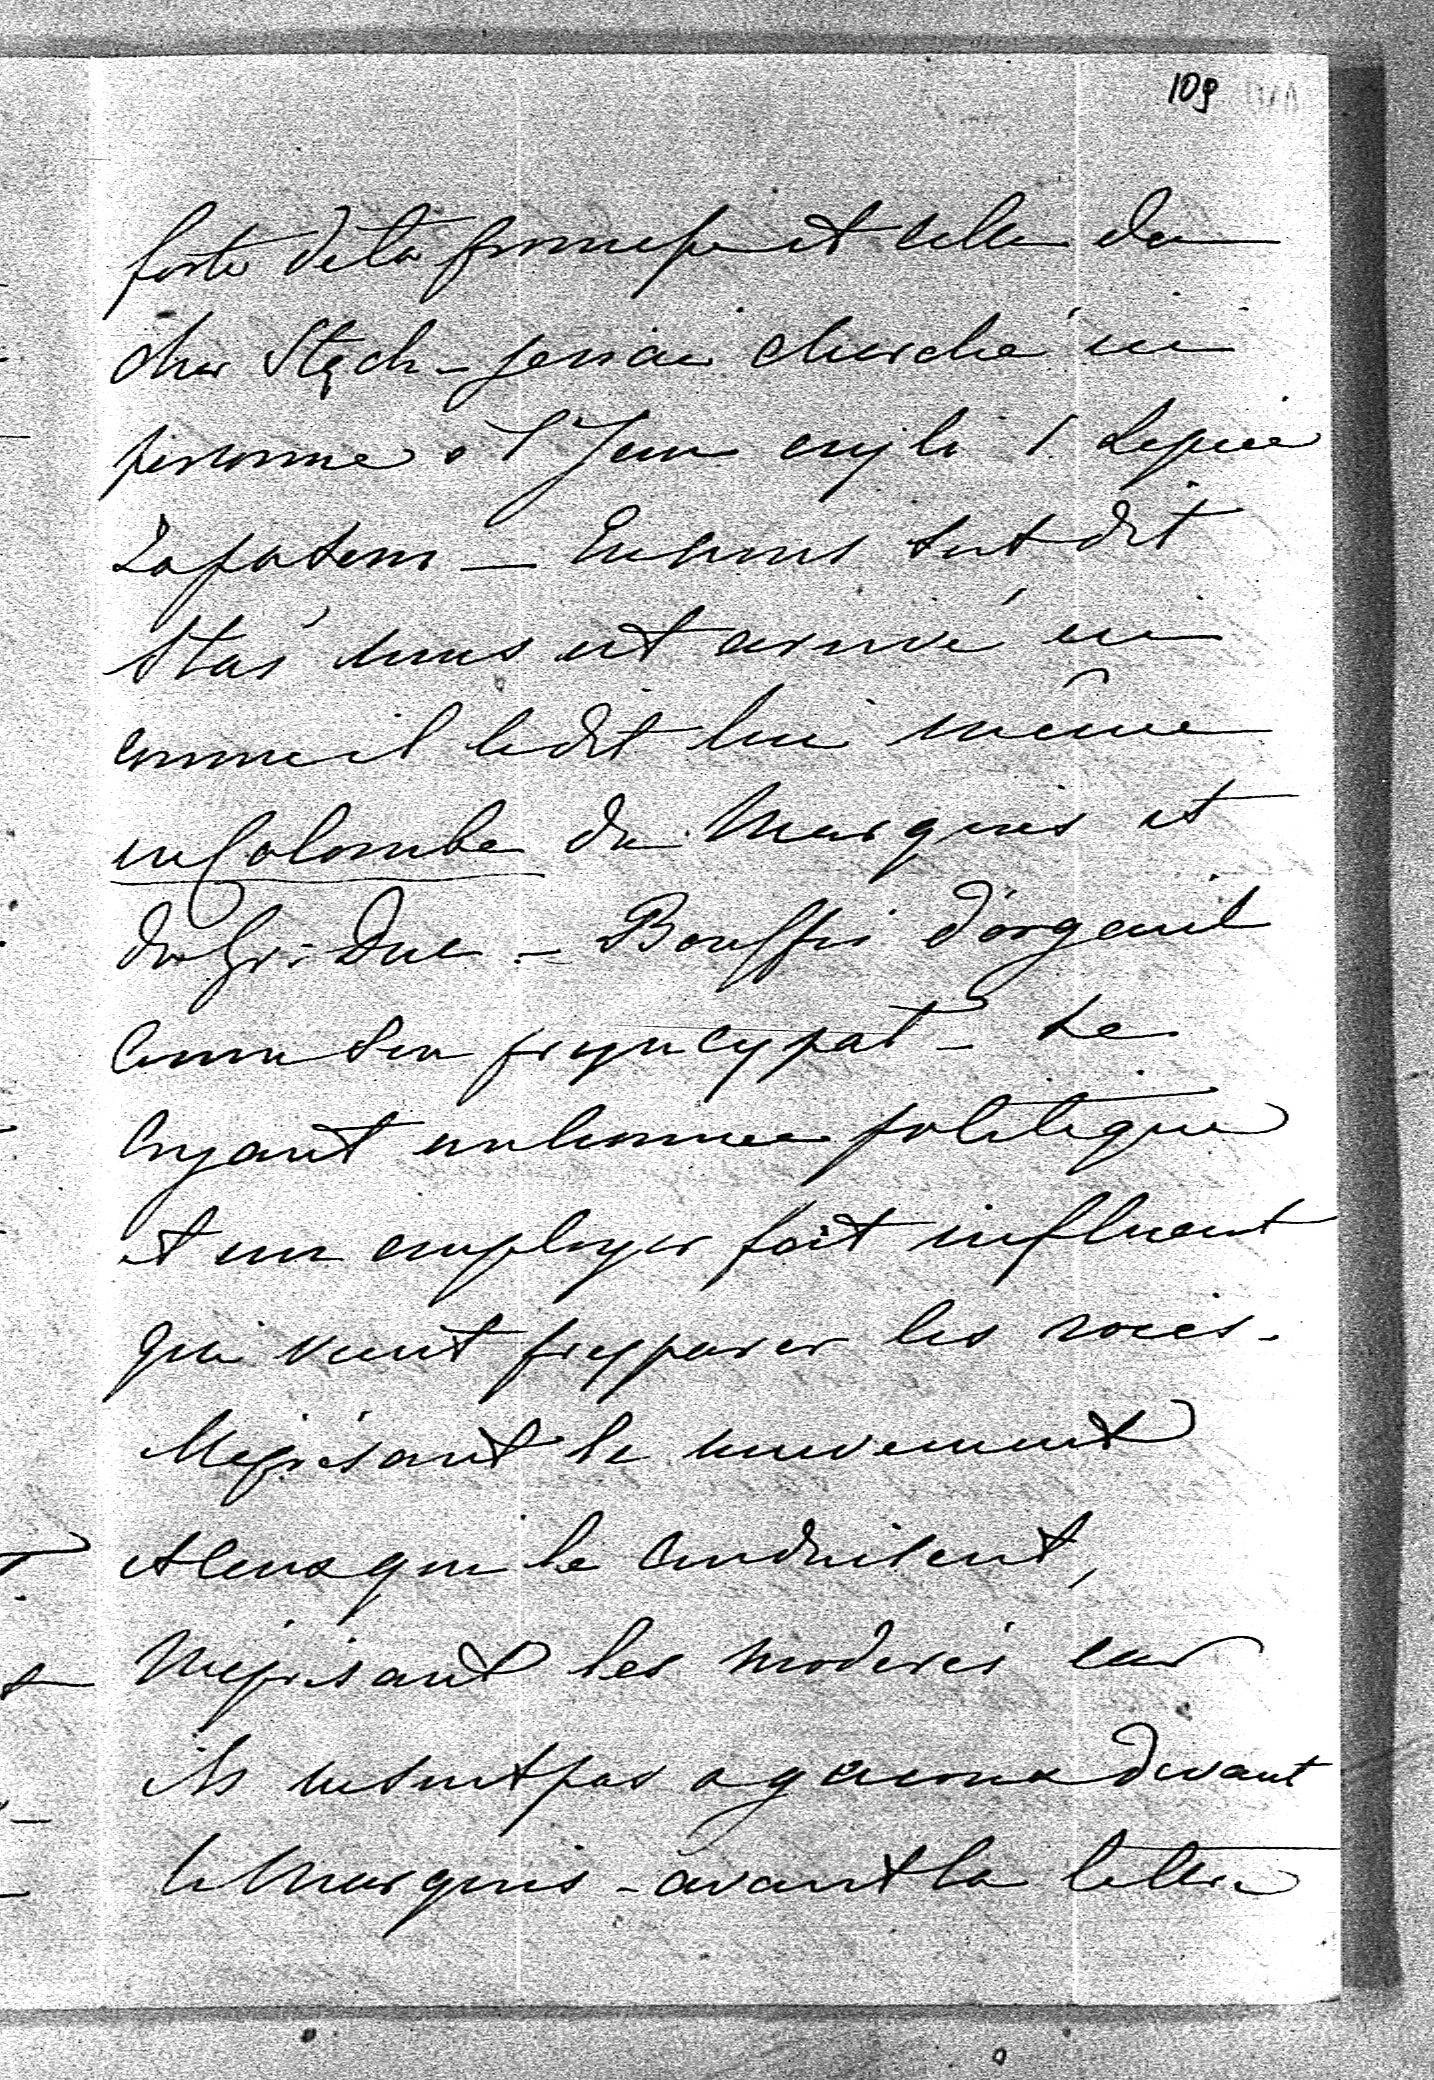 109
forte de ta promesse et celle du
cher Stach – je n'ai cherché ici
personne
– Entre nous soit dit
Staś nous est arrivé ici
comme il le dit lui même
en Colombe du Marquis et
du Gr: Duc – Bouffi d'orgeuil
comme son pryncypat – Se
croyant un homme politique
et un employer fort influent
qui vient preparer les voies –
Meprisant le mouvement
et ceux qui le conduisent,
meprisant les moderés car
ils ne sont pas a genoux devant
le Marquis – avant la lettre